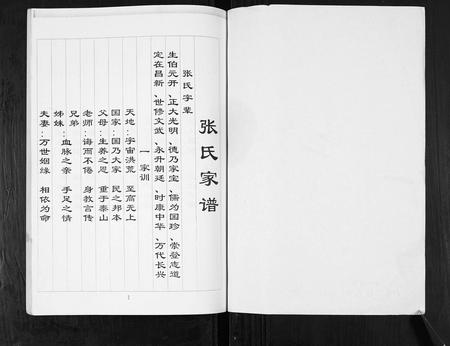 张氏家谱
张氏字辈
生伯元开、正大光明、德乃家宝、儒为国珍、崇登志道
定在昌新、世修文武、永升朝廷、时康中华、万代长兴
一 家训
天地：宇宙洪荒 至高无上
国家：国乃大家 民之邦本
父母：生养之恩 重于泰山
老师：诲而不倦 身教言传
兄弟
姊妹：血脉之亲 手足之情
夫妻：万世姻缘 相依为命
1